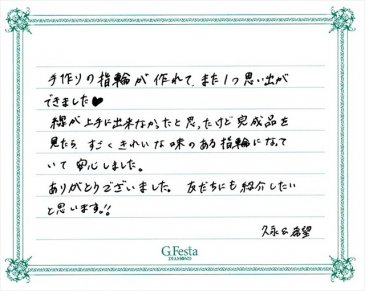 手作りの指輪が作れて、また1つ思い出が
できました♥
線が上手に出来なかったと思ったけど完成品を
見たら、すごくきれいな味のある指輪になって
いて安心しました。
ありがとうございました。友だちにも紹介したい
と思います!!
久永 希望
G.Festa
DIAMOND